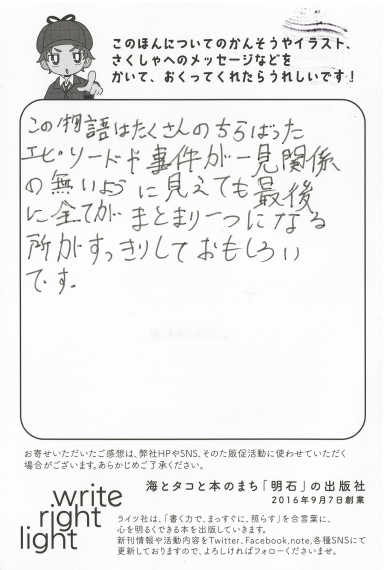 このほんについてのかんそうやイラスト、
さくしゃへのメッセージなどを
かいて、おくってくれたらうれしいです！
この物語はたくさんのちらばった
エピソードや事件が一見関係
の無いように見えても最後
に全てがまとまり一つになる
所がすっきりしておもしろい
です。
お寄せいただいたご感想は、弊社HPやSNS、そのた販促活動に使わせていただく
場合がございます。あらかじめご了承ください。
海とタコと本のまち「明石」の出版社
2016年9月7日創業
write
right
light
ライツ社は、「書く力で、まっすぐに、照らす」を合言葉に、
心を明るくできる本を出版していきます。
新刊情報や活動内容をTwitter、Facebook、note、各種SNSにて
更新しておりますので、よろしければフォローくださいませ。